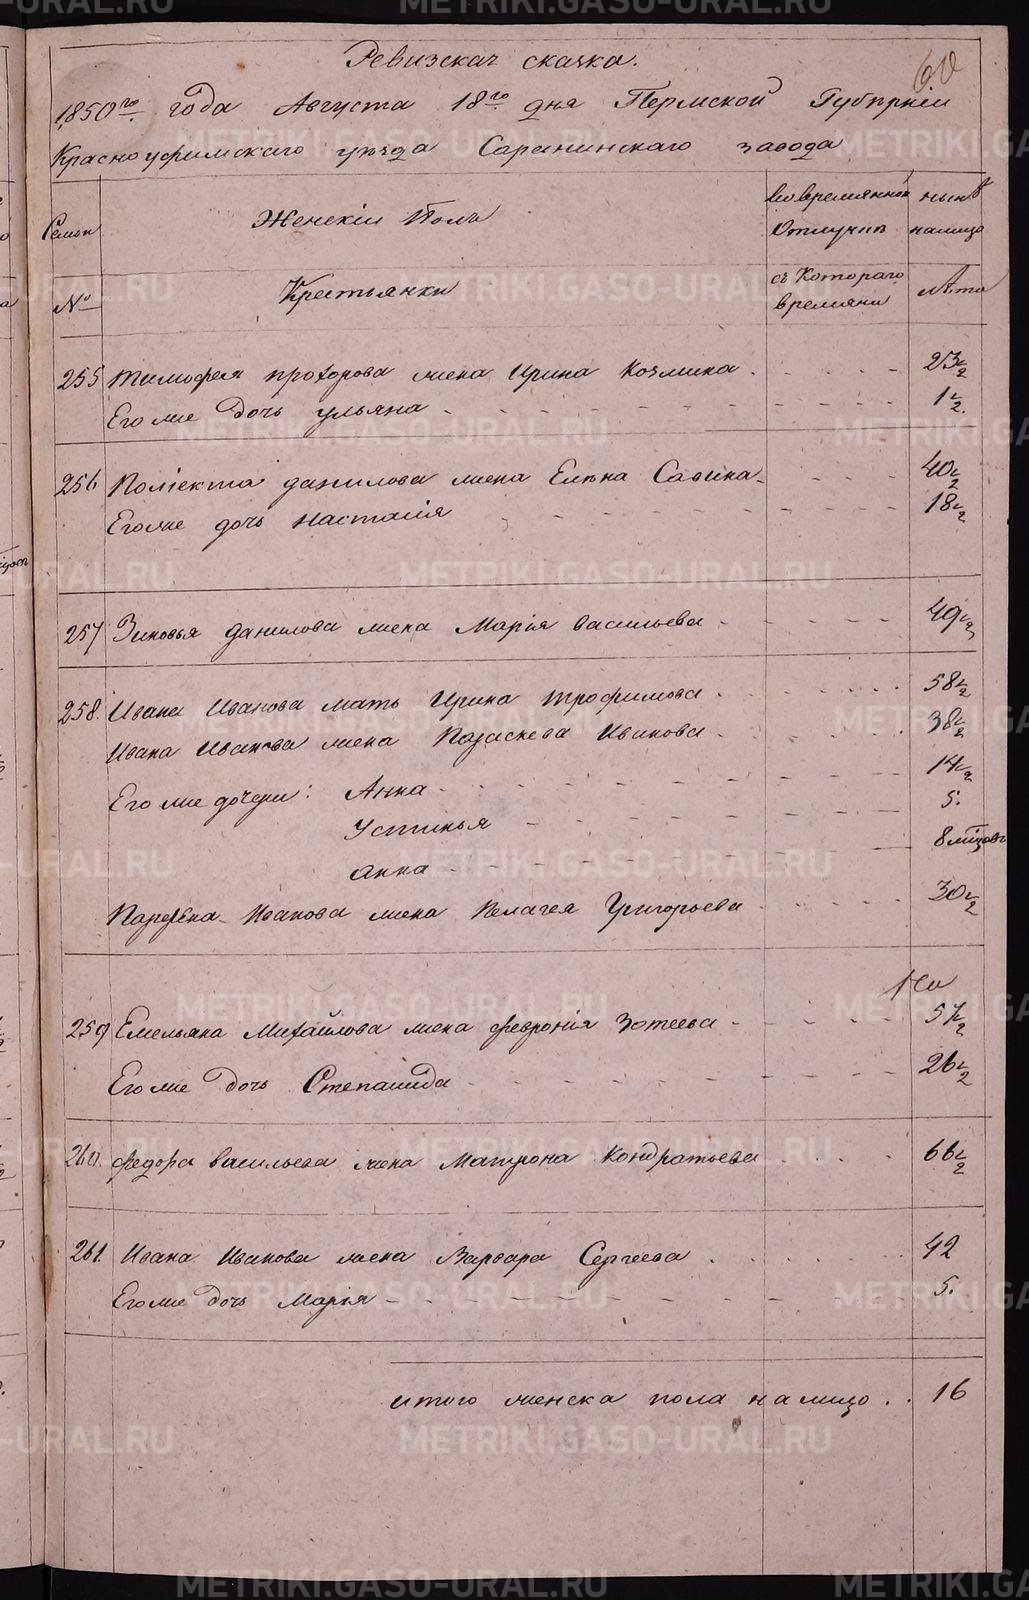 60
Ревизская сказка.
1850го года Августа 18го дня Пермской Губернiи
Красноуфимскаго уезда Саранинскаго завода
Семьи
Женскiй Полъ
во временной
отлучке
ныне
налицо
№
Крестьянки
съ Котораго
времяни
Лета
255 Тимофея прохорова жена Ирина Козмина 23 1/2
Его же дочь ульяна 1 1/2.
256 Полiекта данилова жена Елена Савина 40 1/2
Его же дочь Настасiя 18 1/2
257 Зиновья данилова жена Марiя васильева 49 1/2
258. Ивана Иванова мать Ирина трофимова 58 1/2
Ивана Иванова жена Параскева Иванова 38 1/2
Его же дочери: Анна 14 1/2
Устинья 5.
анна 8 месяцовъ
Парфена Иванова жена Пелагея Григорьева 30 1/2
259 Емельяна Михайлова жена феворонiя Зотеева 57 1/2
Его же дочь Степанида 26 1/2
260. федора васильева жена Матрона Кондратьева 66 1/2
261. Ивана Иванова жена Варвара Сергеева 42
Его же дочь Марiя 5.
итого женска пола налицо . . 16
METRIKI.GASO-URAL.RU